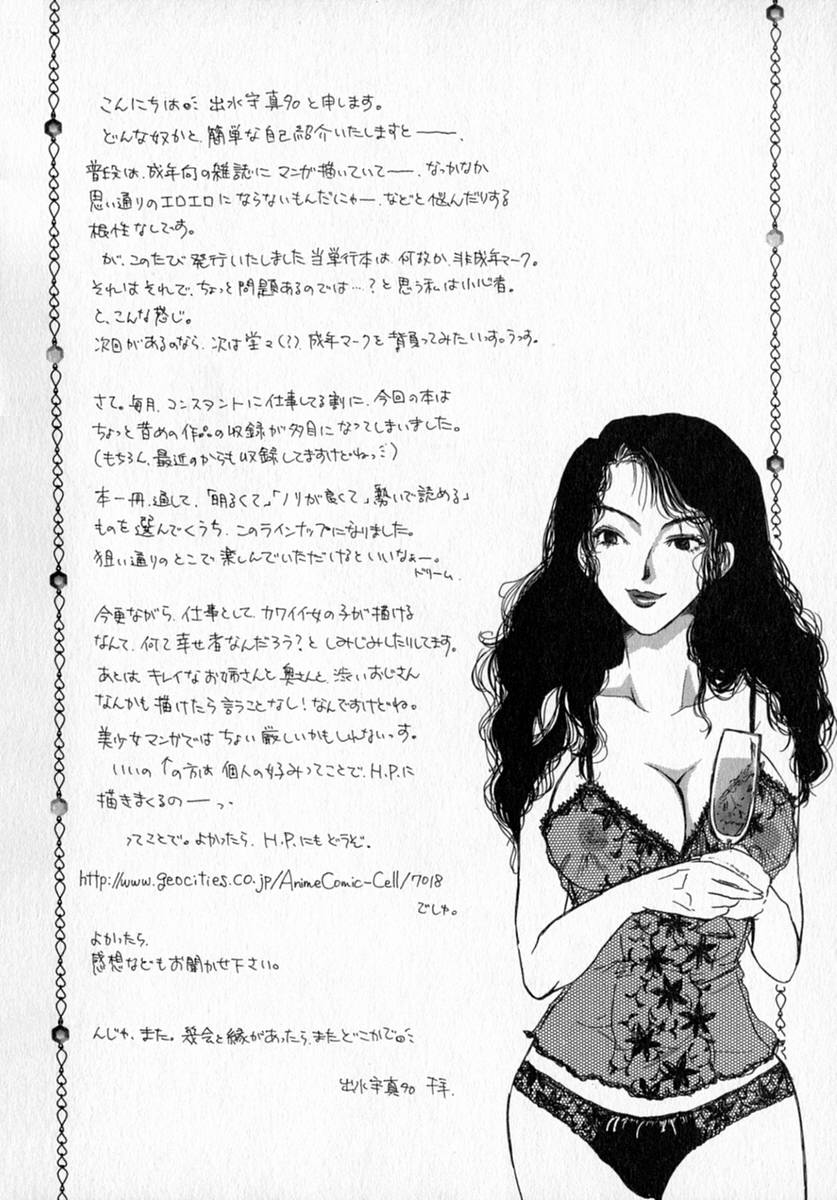 こんにちは。 出水宇真90と申します。
どんな奴かと、簡単な自己紹介いたしますと――.
普段は、成年向の雑誌に マンガ描いていて――. なっかなか
思い通りのエロエロに ならないもんだにゃー、などと悩んだりする
根性なしです。
が、このたび 発行いたしました 当単行本は 何故か、非成年マーク。
それはそれで、ちょっと問題あるのでは…？と思う私は小心者。
と、こんな感じ。
次回があるのなら、次は堂々(?)、成年マークを 背負ってみたいっす。うっす。
さて。毎月、コンスタントに仕事してる割に、今回の本は
ちょっと昔めの作品の収録が多目になってしまいました。
(もちろん、最近のからも収録してますけどねっ)
本一冊、通して、「明るくて」「ノリが良くて」「勢いで読める」
ものを選んでくうち、このラインナップになりました。
狙い通りのとこで楽しんでいただけるといいなぁー。
ドリーム.
今更ながら、仕事として、カワイイ女の子が描ける
なんて、何て幸せ者なんだろう？と しみじみしたりしてます。
あとは キレイなお姉さんと奥さんと、渋いおじさん
なんかも描けたら言うことなし！なんですけどね。
美少女マンガではちょい厳しいかもしれないっす。
いいの ↑の方は 個人の好みってことで、H.P.に
描きまくるの――っ
ってことで。よかったら、H.P.にもどうぞ。
http://www.geocities.co.jp/AnimeComic-Cell/7018
でしゅ。
よかったら、
感想などもお聞かせ下さい。
んじゃ、また。機会と縁があったら、またどこかで。
出水宇真90 干羊.